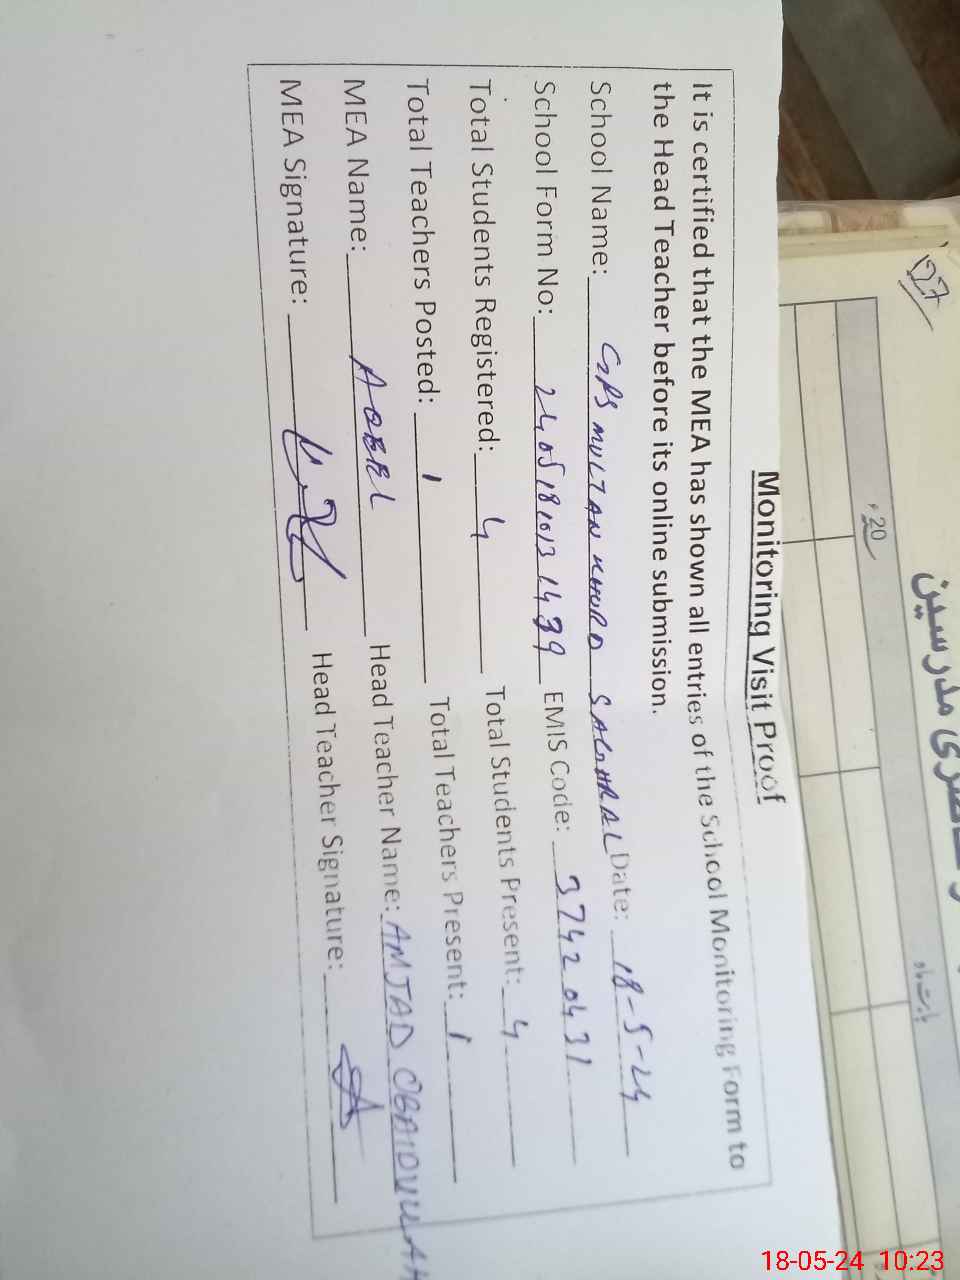 Monitoring Visit Proof
It is certified that the MEA has shown all entries of the School Monitoring Form to
the Head Teacher before its online submission.
School Name: GPS MULTAN KHURD SAGHRAL Date: 18-5-24
School Form No: EMIS Code: 37420431
Total Students Registered: 4 Total Students Present: 4
Total Teachers Posted: 1 Total Teachers Present: 1
MEA Name: AQEEL Head Teacher Name: AMJAD OBAIDULLAH
MEA Signature: Head Teacher Signature:
127
20
مدرسین
بابت ماہ
18-05-24 10:23